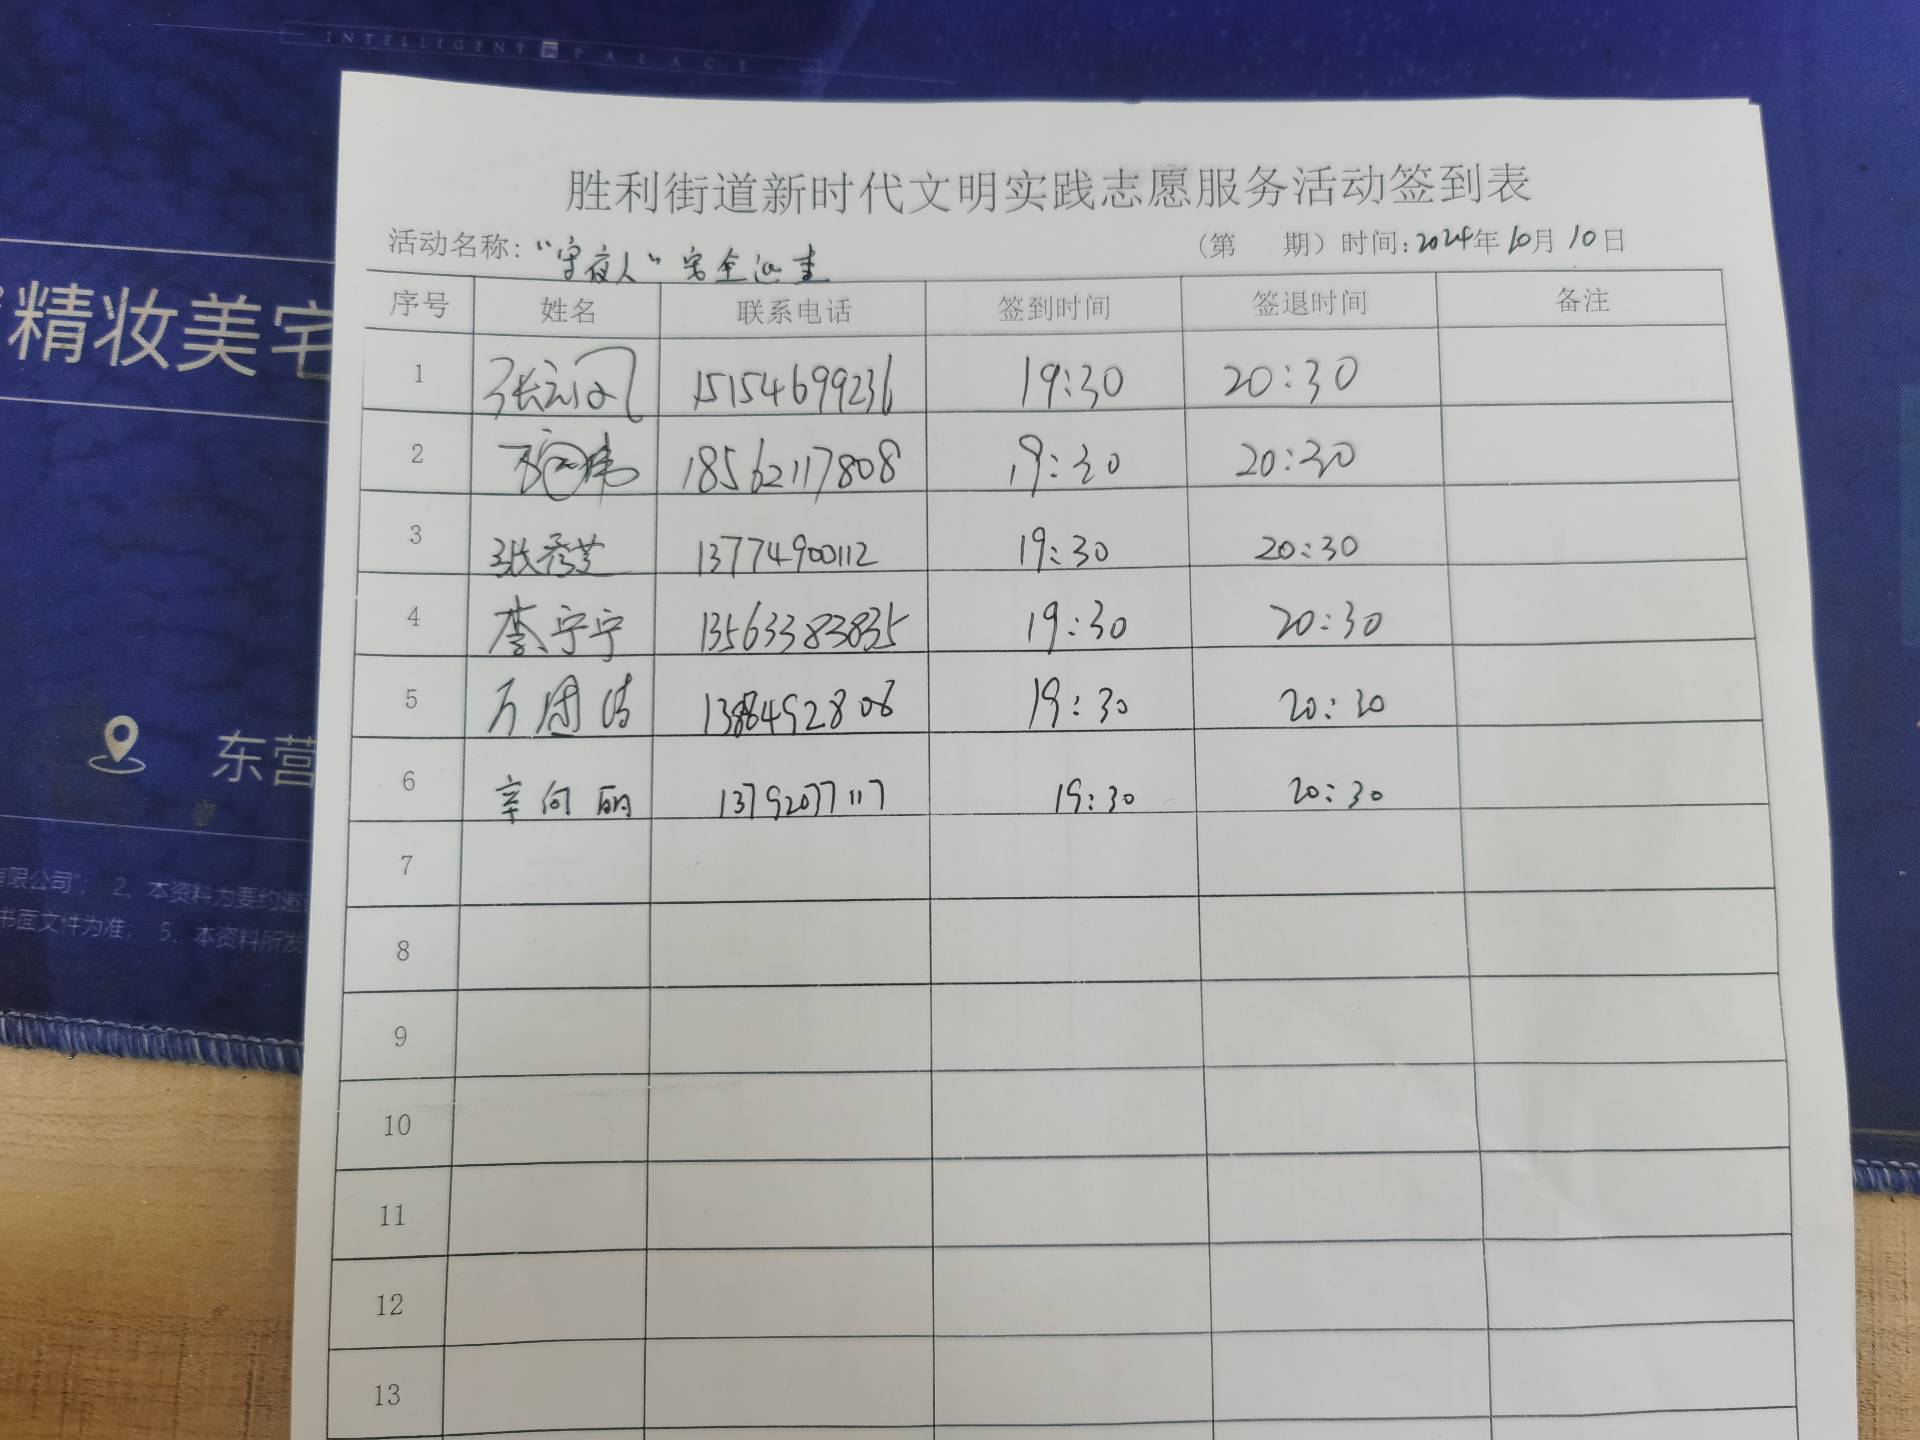 INTELLIGENT PALACE
胜利街道新时代文明实践志愿服务活动签到表
活动名称：“守夜人”安全巡查 （第 期）时间：2024年10月10日
序号 姓名 联系电话 签到时间 签退时间 备注
1 15154699236 19:30 20:30
2 18562117808 19:30 20:30
3 张秀芝 13774900112 19:30 20:30
4 李宁宁 13563383835 19:30 20:30
5 19:30 20:30
6 辛向丽 13792077117 19:30 20:30
7
8
9
10
11
12
13
精妆美宅
东营
有限公司”； 2、本资料为要约邀
书面文件为准； 5、本资料所发